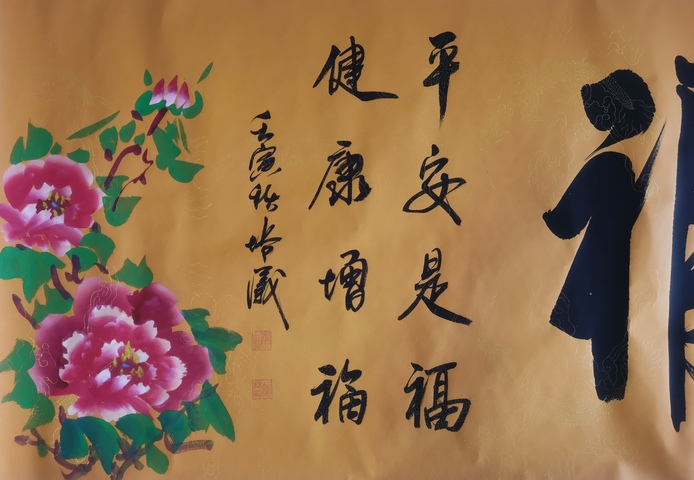 平安是福
健康增福
壬寅秋